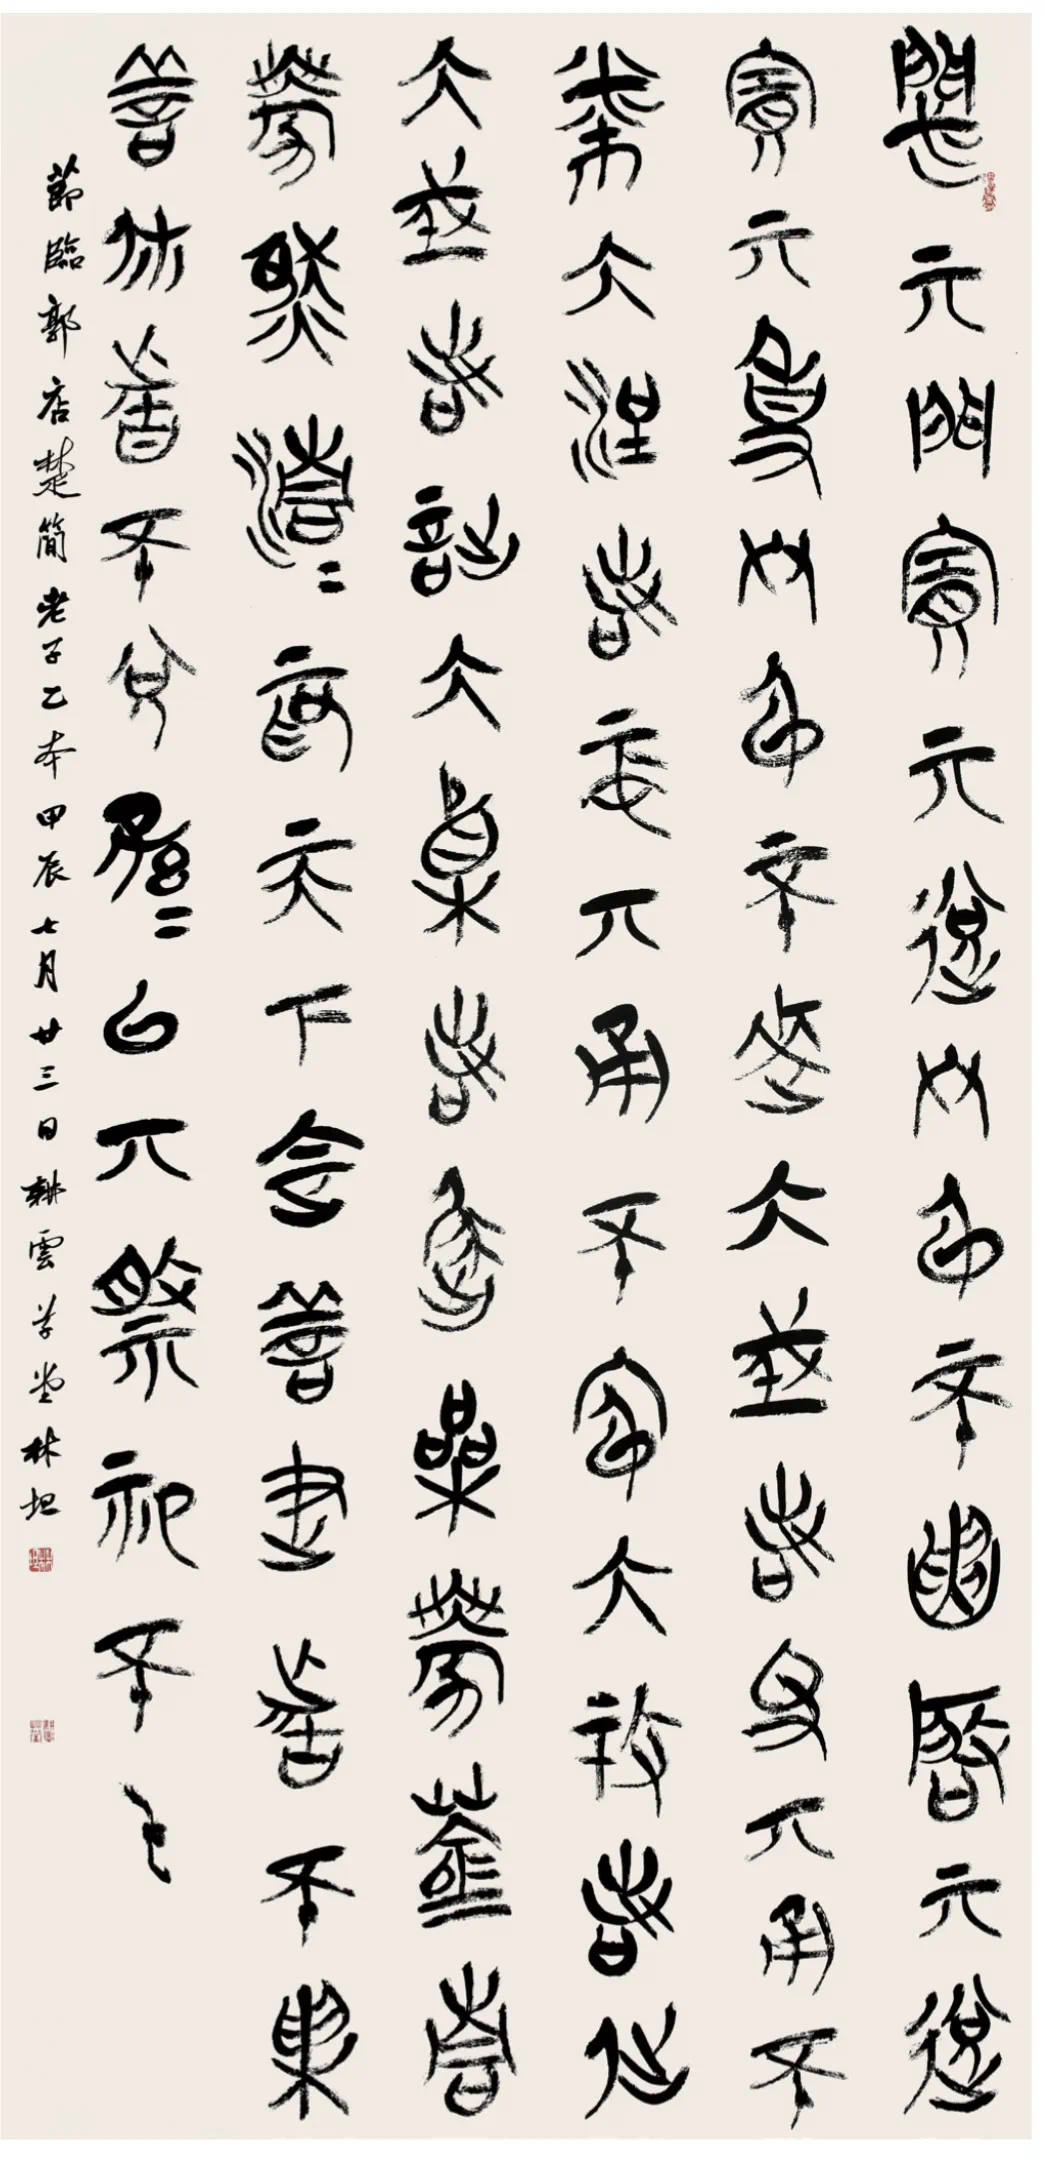 閟亓門賽亓逸終身不啟亓逸
賽亓事終身不逨大成若夬亓甬不
幣大浧若中亓甬不穹大攷若仳
大成若詘大植若屈喿勝蒼青
勝然清=為天下定善建者不拔
善休者不兌子孫=以亓祭祀不乇
節臨郭店楚簡老子乙本甲辰七月廿三日耕雲草堂林坦